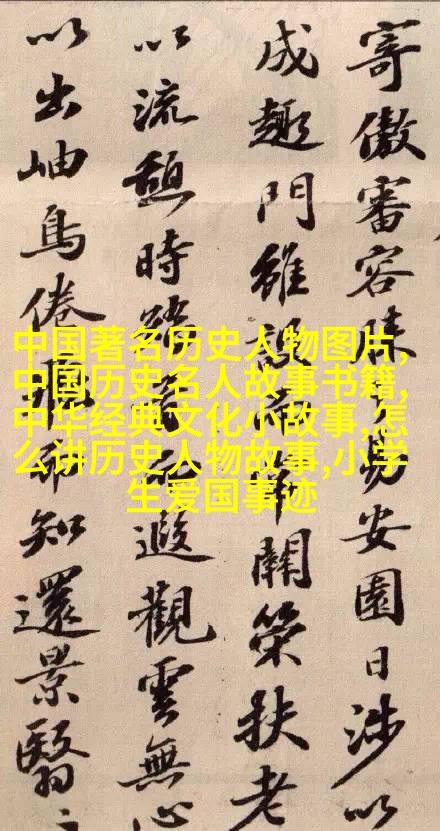 寄傲審容膝易安園日涉以
成趣門雖設而常關策扶老
以流憩時矯首而遐觀雲無心
以出岫鳥倦飛而知還景翳
中国著名历史人物图片,
中国历史名人故事书籍,
中华经典文化小故事,怎
么讲历史人物故事,小学
生爱国事迹